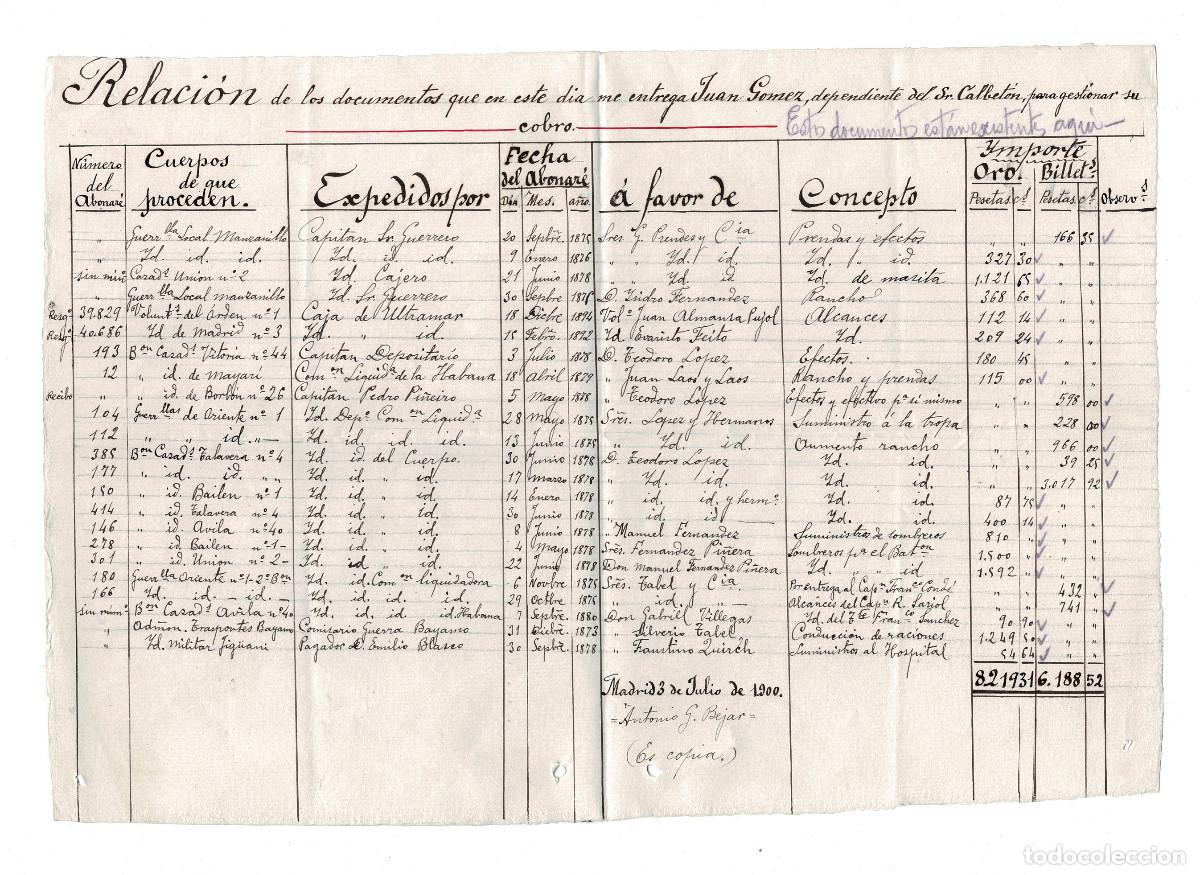 Relación de los documentos que en este dia me entrega Juan Gomez, dependiente del Sr. Calbetón, para gestionar su
cobro.
Estos documentos están existentes aquí
Número del Abonaré | Cuerpos de que proceden. | Expedidos por | Fecha del Abonaré Día Mes. año. | á favor de | Concepto | Ymporte Oro. Pesetas cs Billets Pesetas cs | Observs
" Guerrlla Local Manzanillo Capitan Sr Guerrero 20 Septbre 1875 Sres. G. Prendes y Cia Prendas y efectos " " 166 35
" Yd. id. id. Yd. id. id. 9 Enero 1876 " Yd. id Yd. " id 327 30 " "
sin núm Cazads Union nº 2 Yd. Cajero 21 Junio 1878 " Yd. id Yd. de masita 1.121 65 " "
" Guerrlla Local manzanillo Yd. Sr Guerrero 30 Sepbre D. Ysidro Fernandez Rancho 368 60 " "
Resgo 39.829 Voluntos del Orden nº 1 Caja de Ultramar 18 Dicbre 1874 Volo Juan Almansa Pujol Alcances 112 14 " "
Resgo 40.686 Yd de Madrid nº 3 Yd. " id. 15 Febro. 1872 Yd. Evaristo Feito Yd. 209 24 " "
193 Bon Cazads Vitoria nº 44 Capitan Depositario 3 Julio 1878 D. Teodoro Lopez Efectos. 180 45 " "
12 " id. de Mayarí Comon Liquida de la Habana 18 Abril 1879 " Juan Laos y Laos Rancho y prendas 115 00 " "
Recibo " id. de Borbón nº 26 Capitan Pedro Piñeiro 5 Mayo 1878 " Teodoro Lopez Efectos y efectivo pª si mismo " " 598 00
104 Guerrllas de Oriente nº 1 Yd. Depo Comon Liquida 28 Mayo 1875 Sres. Lopez y Hermanos Suministro á la tropa " " 228 00
112 " " id. " Yd. id. id. id. 13 Junio 1875 " Yd. id. Aumento rancho " " 966 00
385 Bon Cazads Talavera nº 4 Yd. id del Cuerpo. 30 Junio 1878 D. Teodoro Lopez Yd. id. " " 39 25
177 " id. id. " " Yd. id. " id. 17 Marzo 1878 " Yd. id. Yd. id. " " 3.017 92
150 " id. Bailen nº 1 Yd. id. " id. 14 Enero 1878 " id. id. y hermo Yd. id. 87 75 " "
414 " id. Talavera nº 4 Yd. id. " id. 30 Junio 1878 " id. id Yd. id. 400 14 " "
146 " id. Avila nº 40 Yd. id. " id. 8 Junio 1878 " Manuel Fernandez Suministros de sombreros 810 " " "
278 " id. Bailen nº 1 Yd. id. " id. 4 Mayo 1878 Sres. Fernandez Piñera Sombreros pª el Baton 1.500 " " "
301 " id. Union nº 2 Yd. id " id. 22 Junio 1878 Don Manuel Fernandez Piñera Yd. " " id 1.592 " " "
180 Guerrlla Oriente nº 1-2º Bon Yd. id. Comon liquidadora 6 Novbre 1875 Sres. Tabel y Cia Por entrega al Capn Franco Condé " " 432 "
166 Yd. id. id. Yd. id. id. id. 29 Octbre 1875 " id. " Alcances del Capn R. " " 741 "
sin núm Bon Cazads Avila nº 40 Yd. id. id. id. Habana 7 Septbre 1880 Don Gabriel Villegas Yd. del Tte Franco Sanchez 90 90 " "
" Admon. Trasportes Bayamo Comisario Guerra Bayamo 31 Dicbre 1873 " Silverio Tabel Conducción de raciones 1.249 50 " "
" Yd. Militar Jiguani Pagador D. Emilio Blasco 30 Septbre 1878 " Faustino Quirch Suministros al Hospital 54 64 " "
8219 31 6.188 52
Madrid 3 de Julio de 1900.
=Antonio G. Bejar=
(Es copia.)
todocoleccion